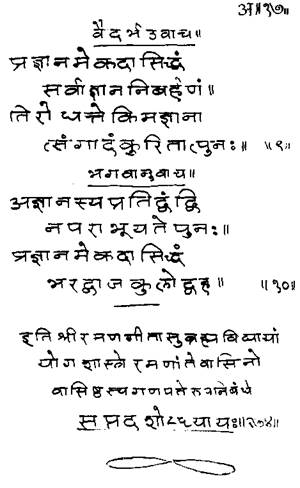 अ॥१७॥
वैदर्भ उवाच॥
प्रज्ञानमेकदा सिद्धं
सर्वाज्ञाननिबर्हणं॥
तिरोधत्ते किमज्ञाना
त्संगादंकुरितात्पुनः॥ ॥९॥
भगवानुवाच॥
अज्ञानस्य प्रतिद्वंद्वि
न पराभूयते पुनः॥
प्रज्ञानमेकदा सिद्धं
भरद्वाजकुलोद्वह॥ ॥१०॥
इति श्रीरमणगीतासु ब्रह्मविद्यायां
योगशास्त्रे रमणांतेवासिनो
वासिष्ठस्य गणपतेरुपनिबंधे
सप्तदशोऽध्यायः॥२७४॥